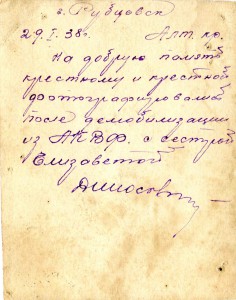 г. Рубцовск
29.I.38г. Алт. кр.
На добрую память
крестному и крестной
фотографировались
после демобилизации
из АКДВФ. с сестрой
Елизаветой